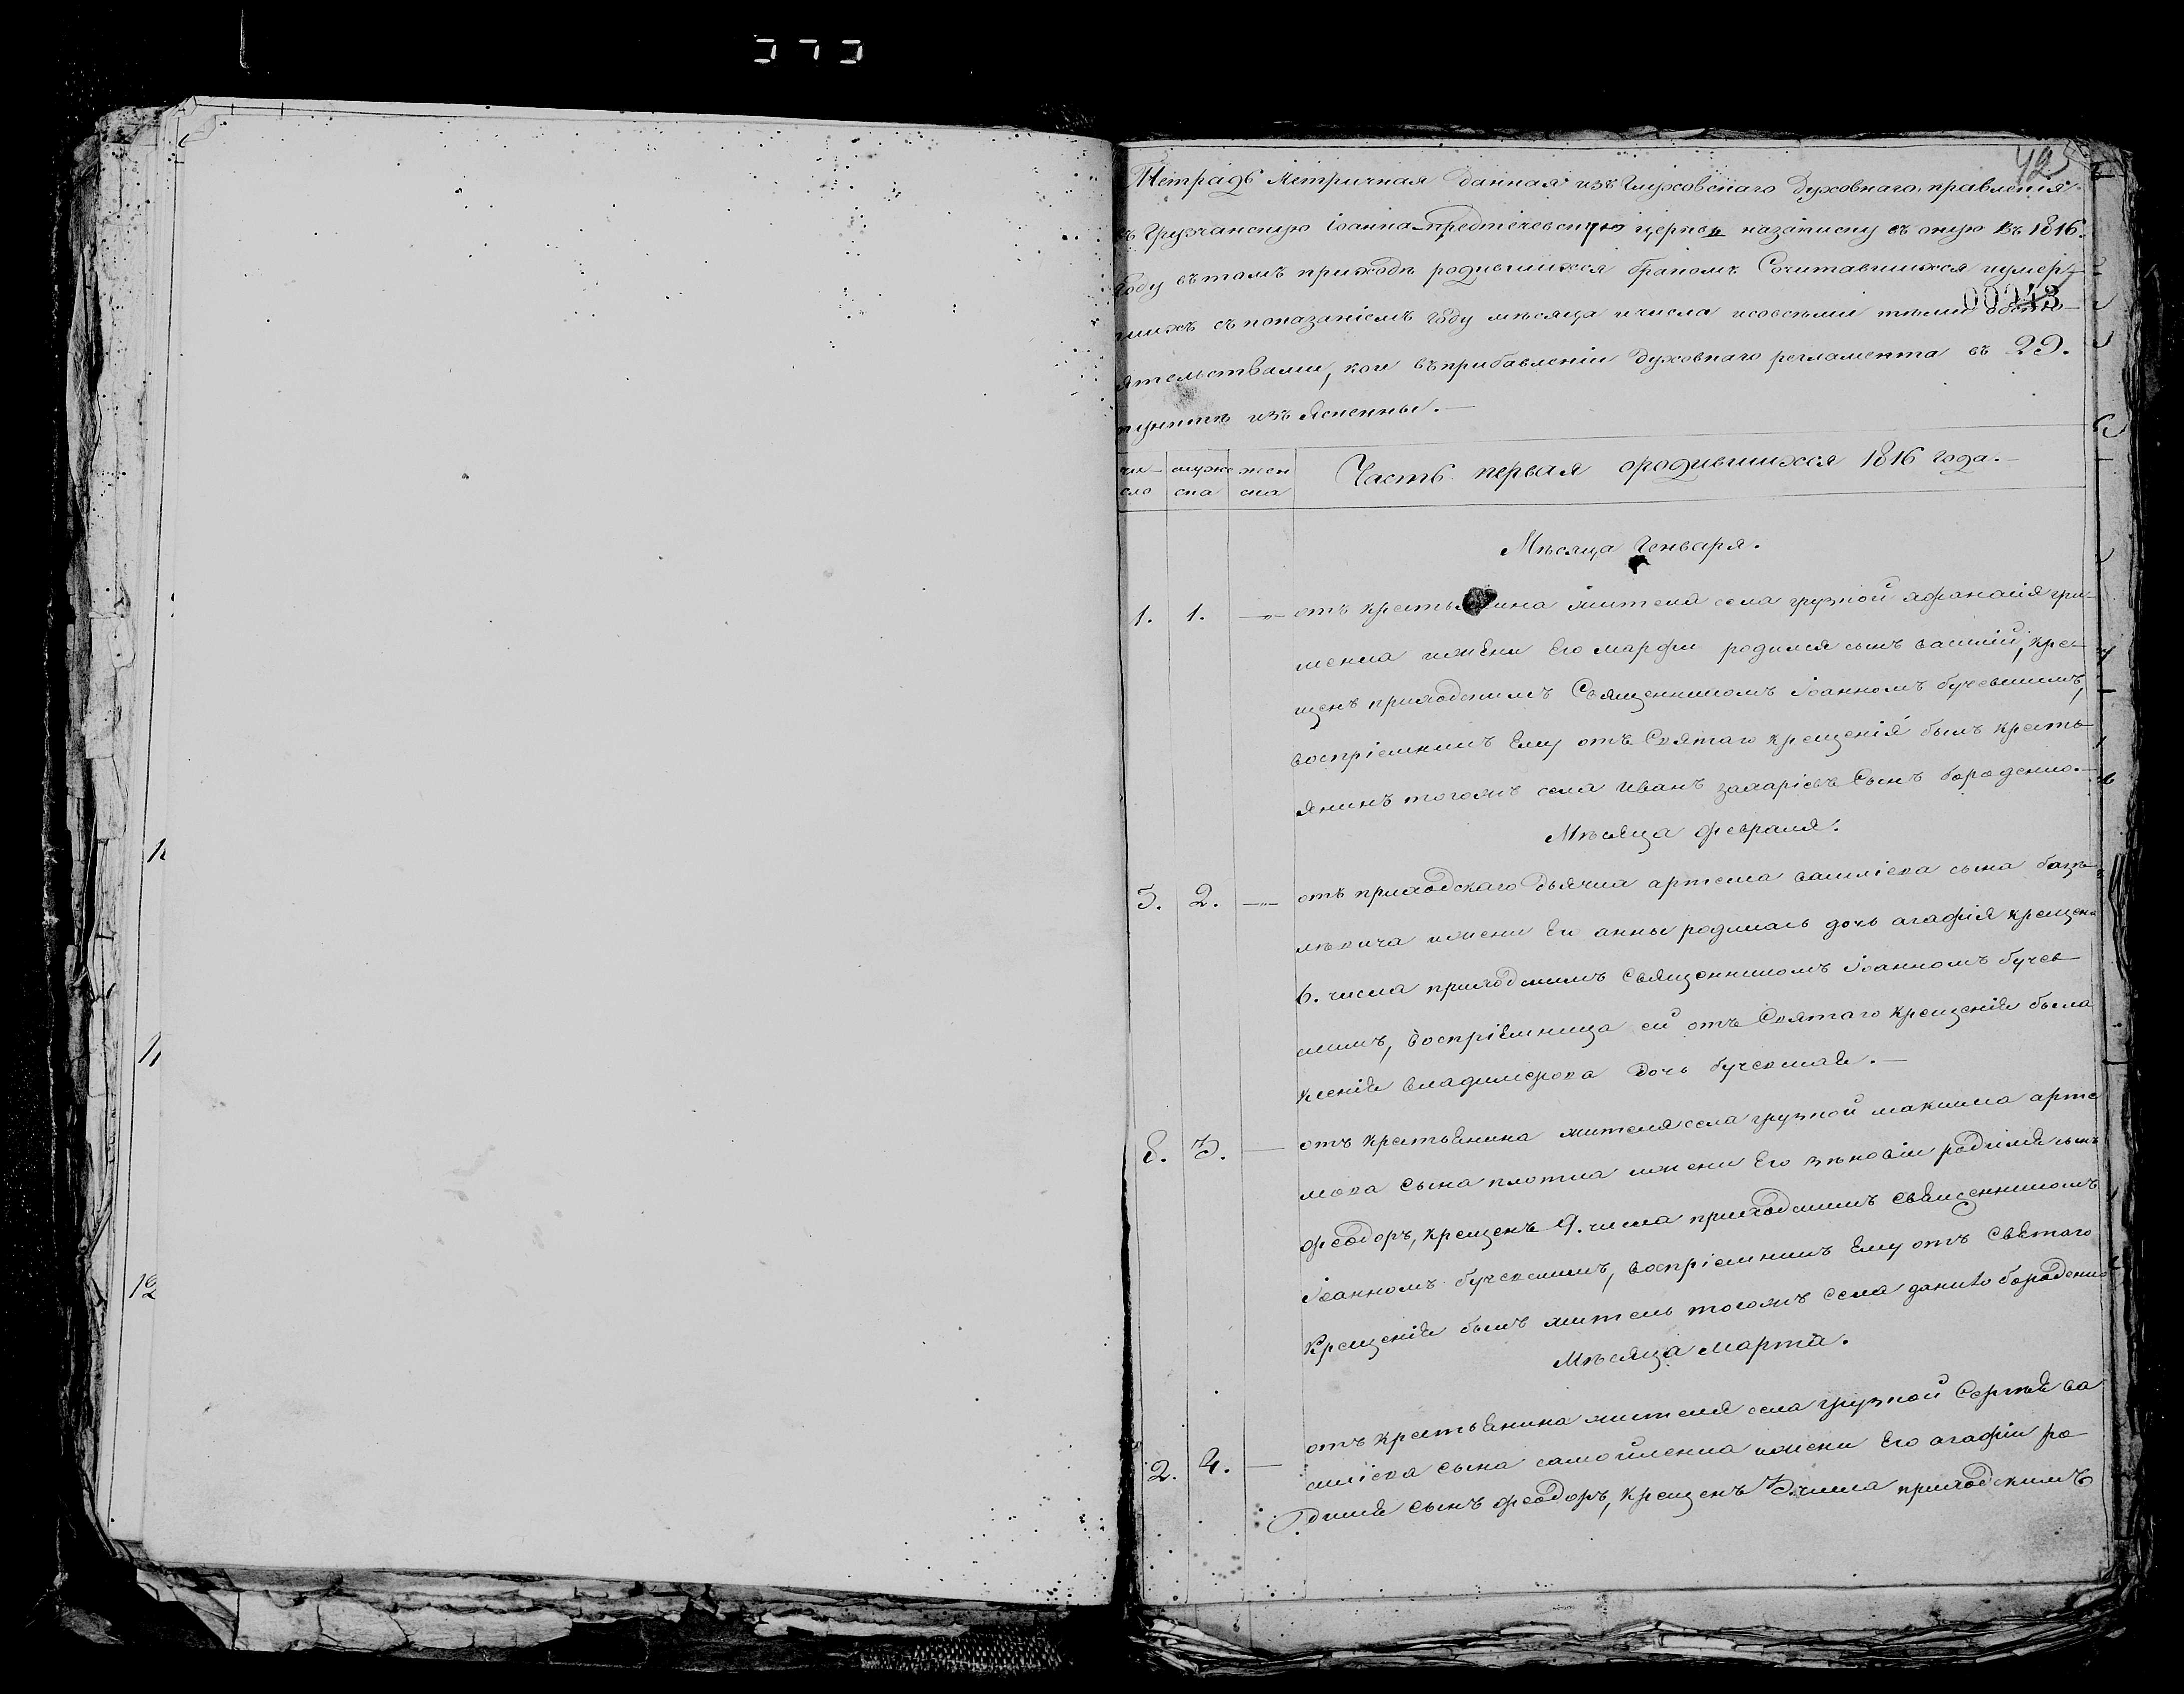 425
Тетрадь метричная данная изъ Глуховскаго духовнаго правленія
въ Грузчанскую іоанна-предтечевскую церковь назаписку въ оную въ 1816.
году втомъ приходѣ родившихся бракомъ Сочитавшихся иумер-
шихъ съ показаніемъ году мѣсяца ичисла исовсѣми тѣми обсто-
00243
ятельствами, кои въприбавленіи духовнаго регламента въ 29.
пунктѣ изъясненны.—
чи- муже жен Часть первая ородившихся 1816 года.—
сло ска ска
Мѣсяца Генваря.
1. 1. — отъ крестьянина жителя села грузкой афанасія гри-
шенка ижени Его марфи родился сынъ василій, кре-
щенъ приходскимъ Священникомъ Іоанномъ бучевскимъ,
воспріемникъ Ему отъ Святаго крещенія былъ кресть-
янинъ тогожъ села Иванъ захаріевъ Сынъ бороденко.—
Мѣсяца февраля.
3. 2. — отъ приходскаго дьячка артема василіева сына
ижени Его анны родилась дочь агафія крещена
6. числа приходскимъ Священникомъ Іоанномъ бучев-
скимъ, воспріемница ей отъ Святаго крещенія была
ксенія владимерова дочь бучевская.—
8. 3. — отъ крестьянина жителя села грузкой максима арте
мова сына плотка ижени Его зѣновіи родился сынъ
феодоръ, крещенъ 9. числа приходскимъ священникомъ
Іоанномъ бучевскимъ, воспріемникъ Ему отъ Святаго
Крещенія былъ житель тогожъ села данило бороденко
Мѣсяца марта.
2. 4. — отъ крестьянина жителя села грузкой Сергѣя ва
силіева сына самойленка ижени Его агафіи ро-
дился сынъ феодоръ, крещенъ 3. числа приходскимъ